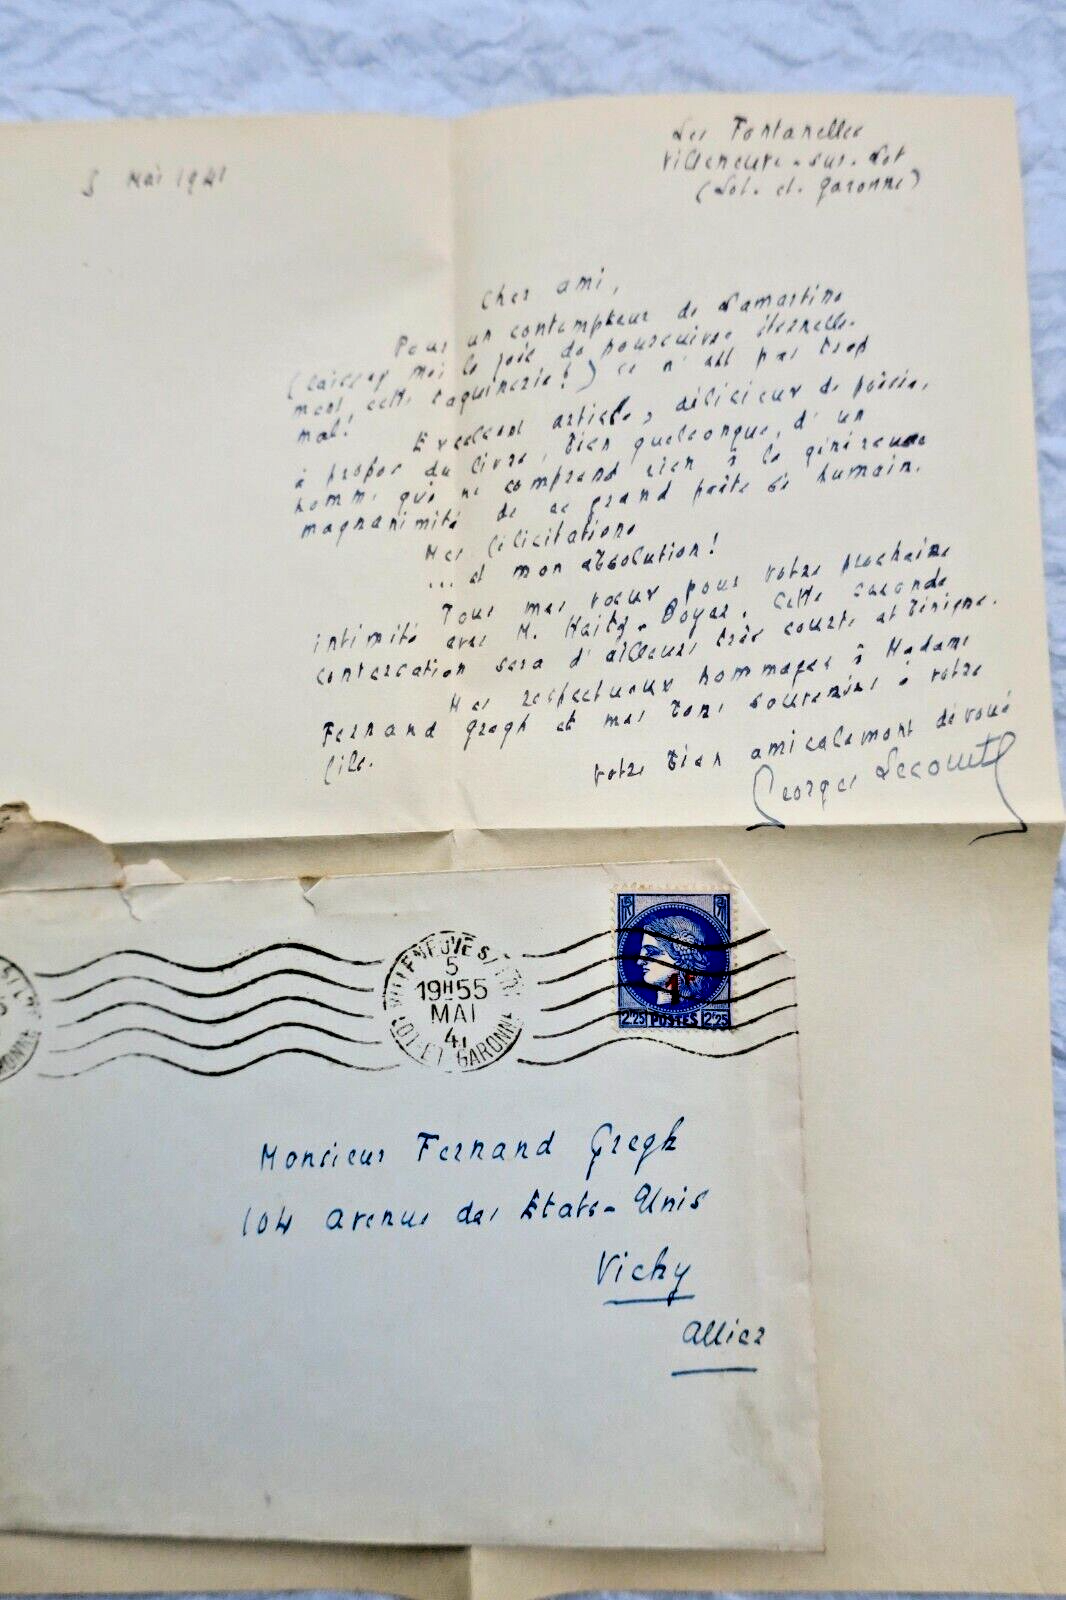 5 Mai 1941
Les Fontanelles
Villeneuve-sur-Lot
(Lot-et-Garonne)
Cher ami,
Pour un contempteur de Lamartine
(laissez moi la joie de poursuivre éternelle-
ment cette taquinerie!) ce n'est pas trop
mal!
Excellent article, délicieux de poésie,
à propos du livre, bien quelconque, d'un
homme qui ne comprend rien à la généreuse
magnanimité de ce grand poète si humain.
Mes félicitations
... et mon absolution!
Tous mes voeux pour votre prochaine
intimité avec M. Boyer. Cette seconde
sera d'ailleurs très courte et bénigne.
Mes respectueux hommages à Madame
Fernand Gregh et mes bons souvenirs à votre
fils.
Votre bien amicalement dévoué
Georges Lecomte
VILLENEUVE S/LOT
5
19H55
MAI
41
LOT-ET-GARONNE
1F
2F25 POSTES 2F25
Monsieur Fernand Gregh
104 avenue des Etats-Unis
Vichy
Allier